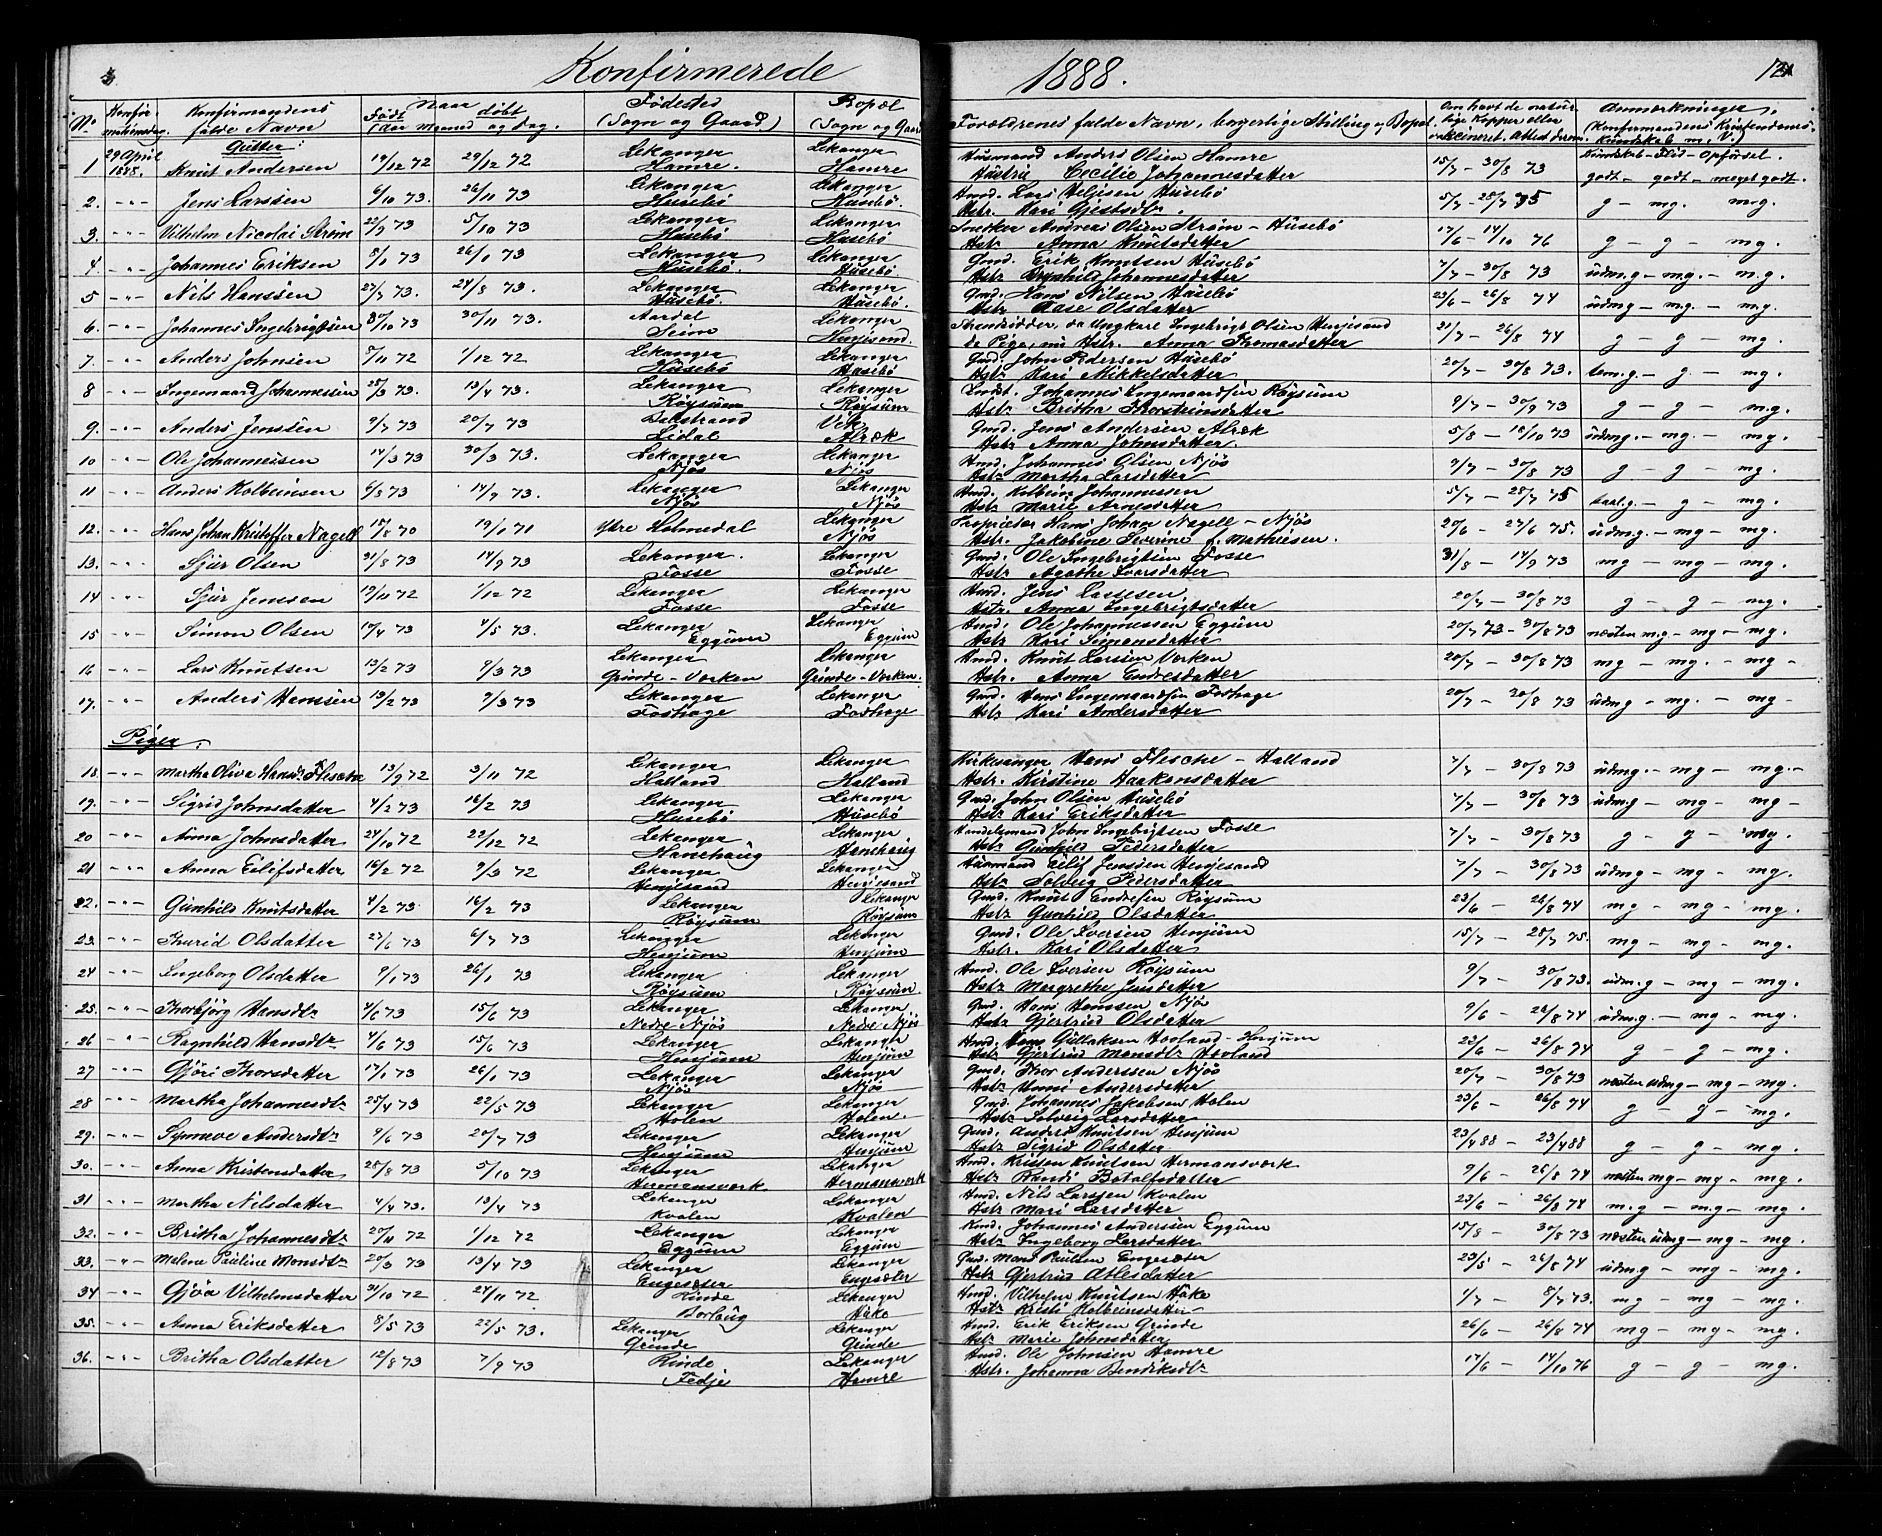 Konfirmerede 1888.
No Konfirmationsdag. Konfirmandens fulde Navn Naar Født døbt (Aar Maaned og Dag. Fødested (Sogn og Gaard) Bopæl (Sogn og Gaard Forældrenes fulde Navn, borgerlige Stilling og Bopæl. Om havt de naturlige Kopper eller vaccineret. Attest derom. Anmærkninger, (Konfirmandens Kristendomskundskab m. V.)
Gutter: Kundskab - Flid - Opførsel.
1 29 April 1888. Knut Andersen 19/12 72 29/12 72 Lekanger Hamre. Lekanger Hamre Husmand Anders Olsen Hamre
Hustru Cecilie Johannesdatter 15/7 - 30/8 73 godt - godt - meget godt.
2. -"- Jens Larssen 6/10 73. 26/11 73 Lekanger Husebø Lekanger Husebø. Hmd. Lars Husebø
Hstr. Kari 5/7 - 28/7 75 g - mg. mg.
3. -"- Vilhelm Nicolai Strøm 22/9 73 5/10 73 Lekanger Husebø Lekanger Husebø Snedker Andreas Olsen Strøm - Husebø
Hstr. Anna Knutsdatter 17/6 - 14/10 76 g - g - mg.
4. -"- Johannes Eriksen 8/1 73 26/1 73 Lekanger Husebø. Lekanger Husebø. Gmd. Erik Knutsen Husebø
Hstr. Brynhild Johannesdatter 7/7 - 30/8 73 udm.g - mg. - m.g.
5 -"- Nils Hanssen 27/7 73. 24/8 73. Lekanger Husebø Lekanger Husebø. Gmd. Hans Nilsen Husebø
Hstr. Aase Olsdatter 23/6 - 26/8 74 udmg - mg. - mg.
6. -"- Johannes Ingebrigtsen 8/10 73 30/11 73. Aardal Seim Lekanger Henjesand. Strandsidder, da Ungkarl Ingebrigt Olsen Henjesand
da Pige, nu Hstr. Anna Thomasdatter 21/7 - 26/8 74 g - g - mg.
7. -"- Anders Johnsen 5/11 72 1/12 72 Lekanger Husebø Lekanger Husebø Gmd. John Pedersen Husebø
Hstr. Kari Mikkelsdatter 20/7 - 30/8 73. tem.g. - g - mg.
8 -"- Ingemaard Johannessen 25/3 73. 13/4 73. Lekanger Røysum Lekanger Røysum Johannes Ingemaardsen Røysum
Hstr. Britha Thorsteinsdatter 9/7 - 30/9 73 g - g - m.g.
9. -"- Anders Jenssen 9/7 73 20/7 73 Balestrand Lidal Vik Alrek Gmd. Jens Andersen Alræk
Hstr. Anna Johnsdatter. 5/8 - 18/10 73 udmg. - mg. - mg.
10 -"- Ole Johannessen 14/3 73 30/3 73. Lekanger Njøs Lekanger Njøs Hmd. Johannes Olsen Njøs
Hstr. Martha Larsdatter 7/7 - 30/8 73 g - g - mg.
11 -"- Anders Kolbeinsen 6/8 73 14/9 73. Lekanger Njøs Lekanger Njøs Hmd. Kolbein Johannessen
Hstr. Marie Arnesdatter 5/7 - 28/7 75 taal.g. - g - mg.
12. -"- Hans Johan Kristoffer Nagell 18/8 70 19/1 71 Ytre Holmedal Lekanger Njøs Proprietær Hans Johan Nagell - Njøs
Hstr. Jakobine Severine f. Mathiesen. 20/6 - 27/6 75. udm.g. - mg - mg.
13. -"- Sjur Olsen 31/8 73 14/9 73 Lekanger. Fosse Lekanger Fosse Gmd. Ole Ingebrigtsen Fosse
Hstr. Agathe Ivarsdatter 31/8 - 14/9 73 mg - mg - mg.
14 -"- Sjur Jenssen 19/11 72 1/12 72 Lekanger Fosse Lekanger Fosse Hmd. Jens Lassesen
Hstr. Anna Ingebrigtsdatter 20/7 - 30/8 73 g - g - mg.
15 -"- Simon Olsen 10/4 73 4/5 73. Lekanger Eggum Lekanger Eggum Hmd. Ole Johannessen Eggum
Hstr. Kari Simonsdatter 20/7 73 - 30/8 73 næsten m.g - mg - mg.
16 -"- Lars Knutsen 13/2 73 9/3 73 Lekanger Grinde-Vorken Lekanger Grinde-Vorken. Hmd. Knut Larssen Vorken
Hstr. Anna Endresdatter 20/7 - 30/8 73 mg - mg. - mg -
17. -"- Anders Hanssen 13/2 73 9/3 73 Lekanger Foshage Lekanger Foshage Gmd. Hans Ingemaardsen Foshage
Hstr. Kari Andersdatter 20/7 - 30/8 73 udmg - mg. - mg -
Piger.
18. -"- Martha Oliva Hansd. Flesche 13/9 72 3/11 72 Lekanger Halland Lekanger Halland Kirkesanger Hans Flesche - Halland
Hstr. Kirstine Haakensdatter 7/7 - 30/8 73 udmg. - mg - mg. -
19. -"- Sigrid Johnsdatter 4/2 73 16/2 73 Lekanger Husebø Lekanger Husebø Gmd. John Olsen Husebø
Hstr. Kari Eriksdatter 7/7 - 30/8 73 udm.g - mg - mg -
20 -"- Anna Johnsdatter 24/10 72 22/12 72 Lekanger Hanehaug Lekanger Hanehaug Handelsmand John Ingebrigtsen Fosse
Hstr. Gunhild Pedersdatter 7/7 - 30/8 73 g - g - mg.
21 -"- Anna Eilifsdatter 16/2 72 9/3 72 Lekanger Henjesand Lekanger Henjesand Husmand Eilif Jenssen Henjesand
Hstr. Solveig Pedersdatter 7/7 - 30/8 73 udmg - mg - mg.
22. -"- Gunhild Knutsdatter 4/2 73 16/2 73 Lekanger Røysum Lekanger Røysum Gmd. Knut Endresen Røysum
Hstr. Gunhild Olsdatter 23/6 - 26/8 74 mg - mg - mg.
23. -"- Thurid Olsdatter 27/6 73 6/7 73 Lekanger Henjum Lekanger Henjum Gmd. Ole Iversen Henjum
Hstr. Kari Olsdatter 15/7 - 28/7 75. mg - mg - mg.
24 -"- Ingeborg Olsdatter 9/1 73 26/1 73 Lekanger Røysum Lekanger Røysum. Hmd. Ole Iversen Røysum
Hstr. Margrethe Jensdatter 9/7 - 30/8 73. udm.g - mg - mg.
25. -"- Thorbjørg Hansdtr 4/6 73 15/6 73 Lekanger Nedre Njøs Lekanger Nedre Njøs Gmd. Hans Hanssen Njøs
Hstr. Gjertrud Olsdatter 9/6 - 26/8 74 udm.g. - mg - mg.
26 -"- Ragnhild Hansdtr 4/6 73 15/6 73 Lekanger Henjum Lekanger Henjum Hmd. Hans Gullaksen Hovland - Henjum
Hstr. Gjertrud Monsdtr Hovland 22/6 - 26/8 74 g - g - mg.
27 -"- Gjøri Thorsdatter 17/1 73 26/1 73 Lekanger Njøs Lekanger Njøs Gmd. Thor Anderssen Njøs
Hstr. Unni Andersdatter 20/7 - 30/8 73 næsten udmg - mg - mg.
28 -"- Martha Johannesdtr 25/4 73 22/5 73 Lekanger Holen Lekanger Holen. Gmd. Johannes Jakobsen Holen
Hstr. Solveig Larsdatter 23/6 - 26/8 74 g - g - mg.
29. -"- Synneve Andersdtr 9/6 73 20/7 73 Lekanger Henjum Lekanger Henjum Gmd. Anders Knutsen Henjum
Hstr. Sigrid Olsdatter 23/4 88 - 23/4 88 g - g - mg.
30. -"- Anna Kristensdatter 28/8 73 5/10 73 Lekanger Hermansværk Lekanger Hermansværk Hmd. Kristen Knutsen Hermansværk
Hstr. Randi Botolfsdatter 9/6 - 26/8 74 næsten mg - mg - mg.
31 -"- Martha Nilsdatter 4/4 73. 13/4 73 Lekanger Kvalen Lekanger Kvalen Hmd. Nils Larssen Kvalen
Hstr. Mari Larsdatter 23/6 - 26/8 74 m.g - mg - mg.
32. -"- Britha Johannesdtr 20/11 72 1/12 72 Lekanger Eggum Lekanger Eggum Hmd. Johannes Anderssen Eggum
Hstr. Ingeborg Larsdatter 15/8 - 30/8 73 næsten udmg - mg - mg.
33. -"- Malene Pauline Monsdtr 20/3 73 13/4 73 Lekanger Engesæter Lekanger Engesæter Gmd. Mons Paulsen Engesæter
Hstr. Gjertrud Atlesdatter 23/5 - 26/8 74 udm.g - mg - mg.
34 -"- Gjøa Vilhelmsdatter 31/10 72 24/11 72 Rinde Borlaug Lekanger Hako Hmd. Vilhelm Knutsen Hako
Hstr. Kristi Kolbeinsdatter 4/7 - 8/7 73. mg - mg - mg.
35. -"- Anna Eriksdatter 8/5 73 22/5 73. Lekanger Grinde Lekanger Grinde Hmd. Erik Eriksen Grinde
Hstr. Marie Johnsdatter 26/6 - 26/8 74 mg - mg - mg.
36. -"- Britha Olsdatter 12/8 73 7/9 73 Rinde Fedje Lekanger Hamre Hmd. Ole Johnsen Hamre
Hstr. Johanna Bendiksdtr 17/6 - 14/10 76 g - g - mg.